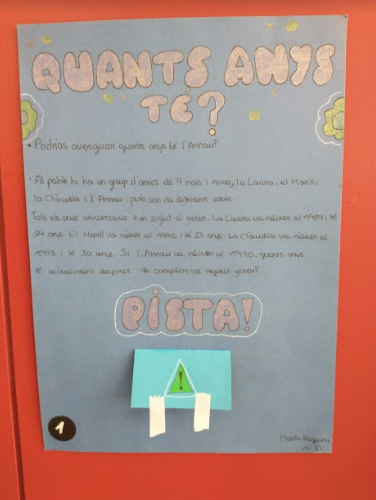 QUANTS ANYS
TÉ?
• Podries averiguar quants anys té l'Arnau?
• Al poble hi ha un grup d'amics de 4 nois i noies, la Laura, el Martí,
la Clàudia i l'Arnau, però són de diferents edats.
Tots els seus aniversaris han sigut al gener. La Laura va néixer al 1989 i té
34 anys. El Martí va néixer al i té anys. La Clàudia va néixer al
1993 i té 30 anys. Si l'Arnau va néixer al 1990, quants anys
té actualment després de complir-los aquest gener?
PISTA!
!
1
Martí